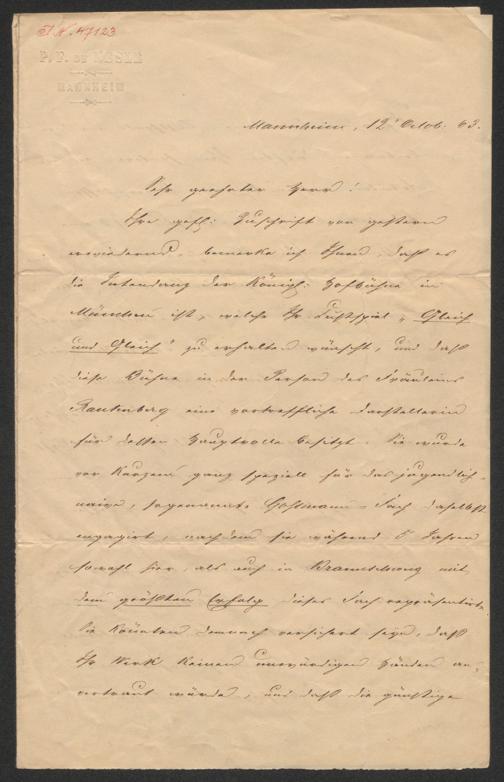 I.N. 47123
MANNHEIM
Mannheim, 12t Octob. 63.
Sehr geehrter Herr!
Ihre gefl: Zuschrift von gestern
erwiedernd, bemerke ich Ihnen, daß es
die Intendanz der Königl: Hofbühne in
München ist, welche Ihr Lustspiel „Gleich
und Gleich" zu erhalten wünscht, und daß
diese Bühne in der Person des Fräuleins
Rautenberg eine vortreffliche Darstellerin
für dessen Hauptrolle besitzt. Sie wurde
vor Kurzem ganz speziell für das jugendlich-
naive, sogenannte Goßmann-Fach daselbst
engagirt, nachdem sie während 5 Jahren
sowohl hier, als auch in Braunschweig mit
dem größten Erfolg dieses Fach repräsentirte.
Sie könnten demnach versichert seyn, daß
Ihr Werk keinen unwürdigen Händen an-
vertraut würde, und daß die günstige